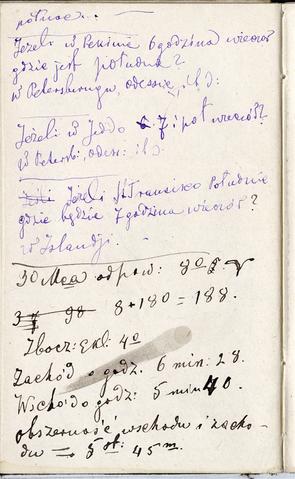 północ...
Jeżeli w Pekinie 6 godzina wieczór
gdzie jest południe?
w Petersburgu, odessie, i t.d:
Jeżeli w Jeddo 7 i pół wieczór?
w Petersb: odess: i t.d:
Jeżeli S. Francisco Południe
gdzie będzie 7 godzina wieczór?
w Islandji.
30 Maa odpow: 8º
98 8+180 = 188.
Zbocz: Ekl: 4º
Zachód o godz. 6 min: 28.
Wschód o godz: 5 min 40.
obszerność wschodu i zacho-
du = 5 st: 45 m.